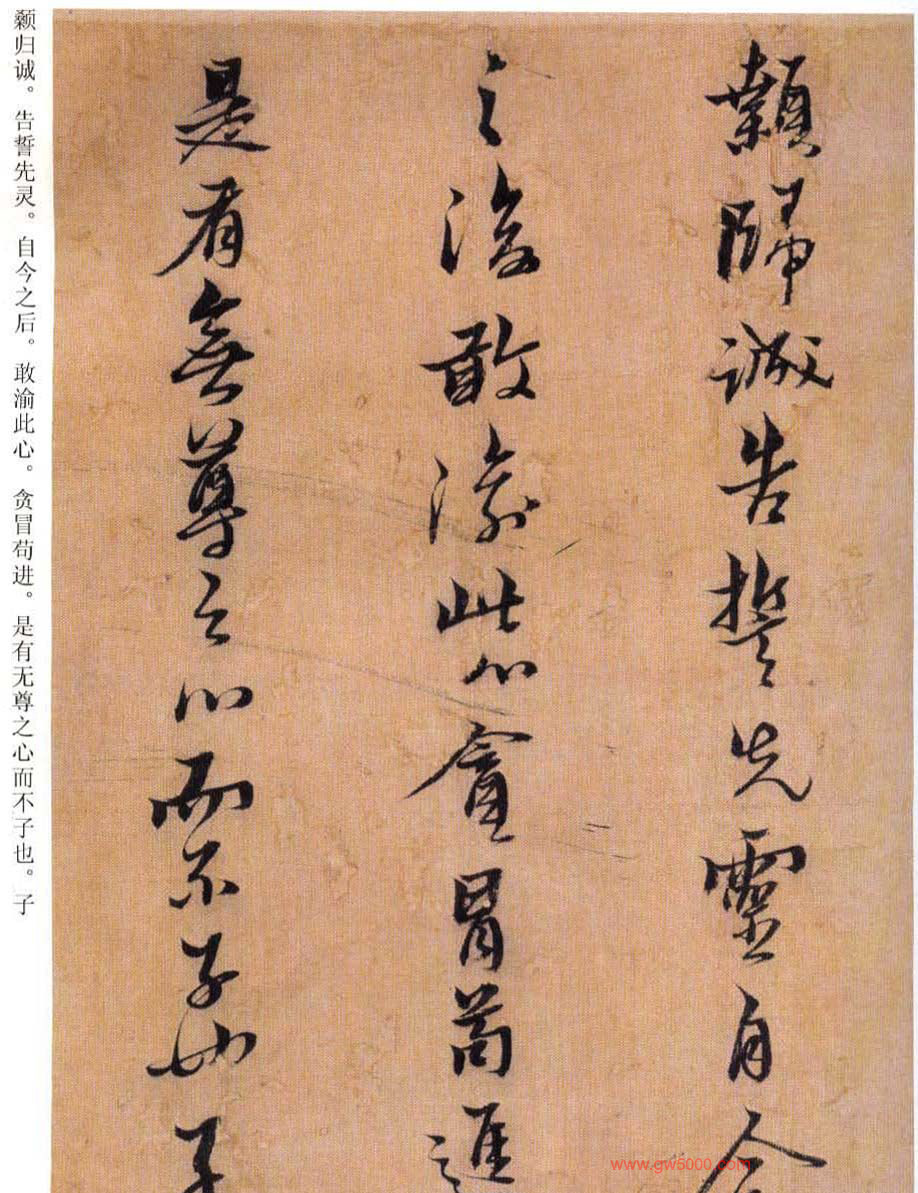 颡归诚。告誓先灵。自今之后。敢渝此心。贪冒苟进。是有无尊之心而不子也。子
顙歸誠告誓先靈自今
之後敢渝此心貪冒苟進
是有無尊之心而不子也子
www.gw5000.com